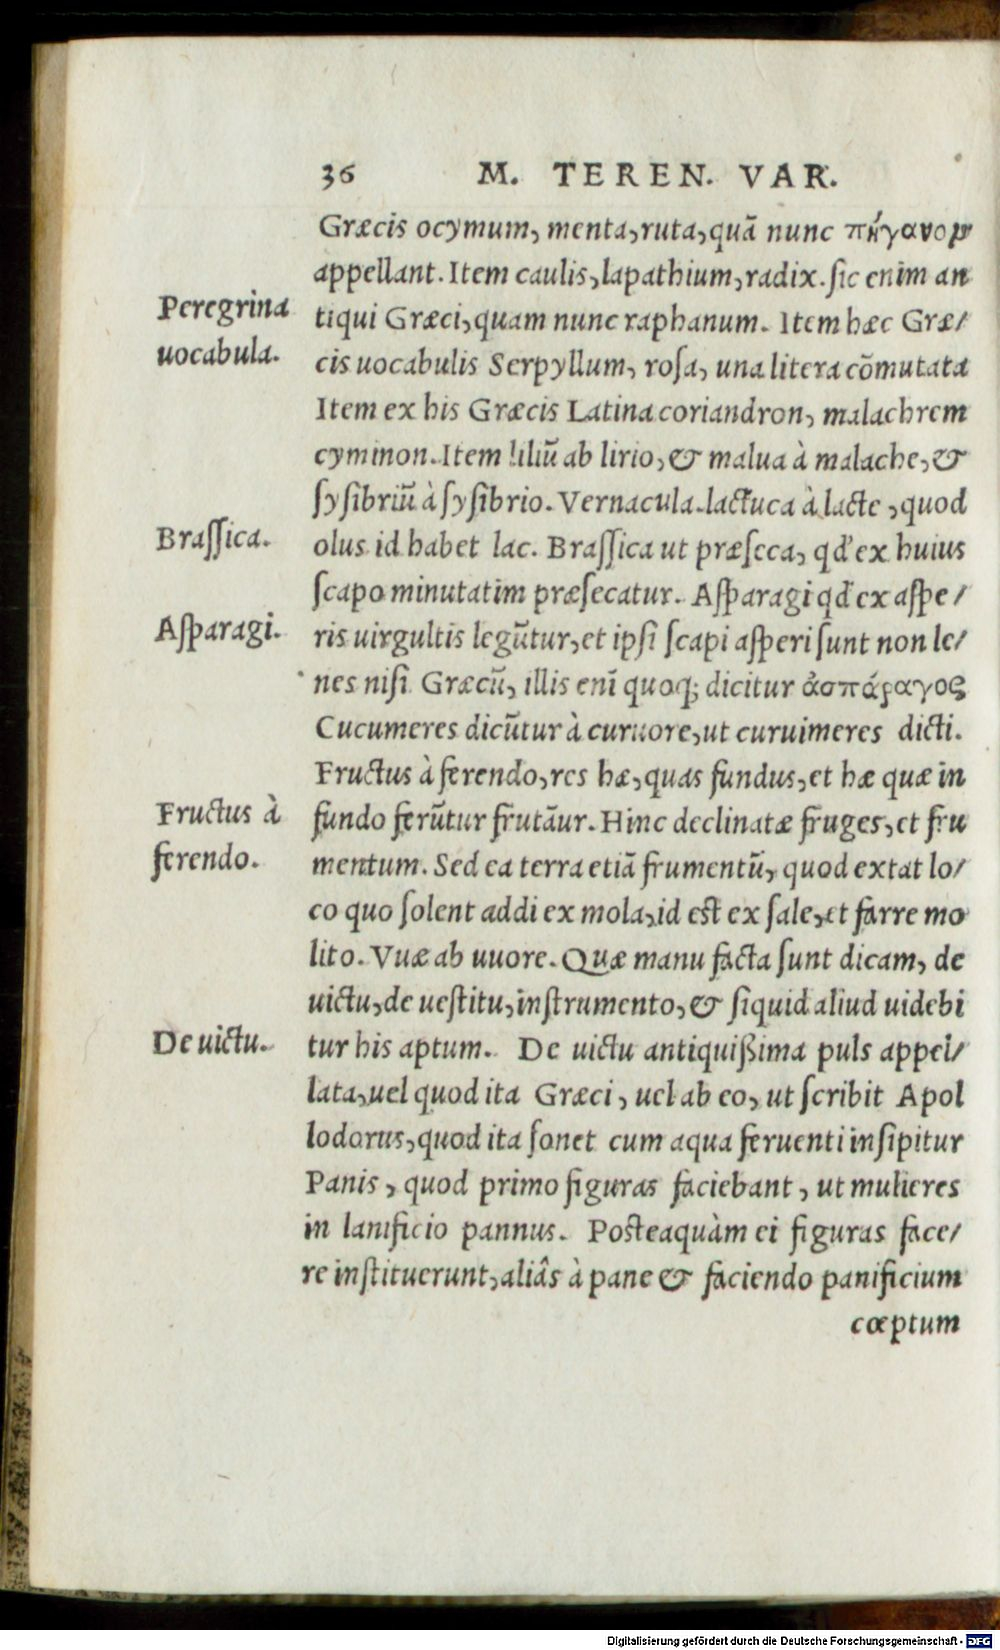 36 M. TEREN. VAR.
Græcis ocymum, menta, ruta, quã nunc πήγανον
appellant. Item caulis, lapathium, radix. sic enim an
Peregrina
tiqui Græci, quam nunc raphanum. Item hæc Græ/
uocabula.
cis uocabulis Serpyllum, rosa, una litera cõmutata
Item ex his Græcis Latina coriandron, malachrem
cyminon. Item liliũ ab lirio, & malua à malache, &
sysibriũ à sysibrio. Vernacula. lactuca à lacte, quod
Brassica.
olus id habet lac. Brassica ut præseca, qđ ex huius
scapo minutatim præsecatur. Asparagi qđ ex aspe/
Asparagi.
ris uirgultis legũtur, et ipsi scapi asperi sunt non le/
nes nisi Græcũ, illis enĩ quoq; dicitur ἀσπάραγος
Cucumeres dicũtur à curuore, ut curuimeres dicti.
Fructus à ferendo, res hæ, quas fundus, et hæ quæ in
Fructus à
fundo ferũtur frutãur. Hinc declinatæ fruges, et fru
ferendo.
mentum. Sed ea terra etiã frumentũ, quod extat lo/
co quo solent addi ex mola, id est ex sale, et farre mo
lito. Vuæ ab uuore. Quæ manu facta sunt dicam, de
uictu, de uestitu, instrumento, & siquid aliud uidebi
De uictu.
tur his aptum. De uictu antiquißima puls appel/
lata, uel quod ita Græci, uel ab eo, ut scribit Apol
lodorus, quod ita sonet cum aqua feruenti insipitur
Panis, quod primo figuras faciebant, ut mulieres
in lanificio pannus. Posteaquàm ei figuras face/
re instituerunt, aliâs à pane & faciendo panificium
cœptum
Digitalisierung gefördert durch die Deutsche Forschungsgemeinschaft - DFG